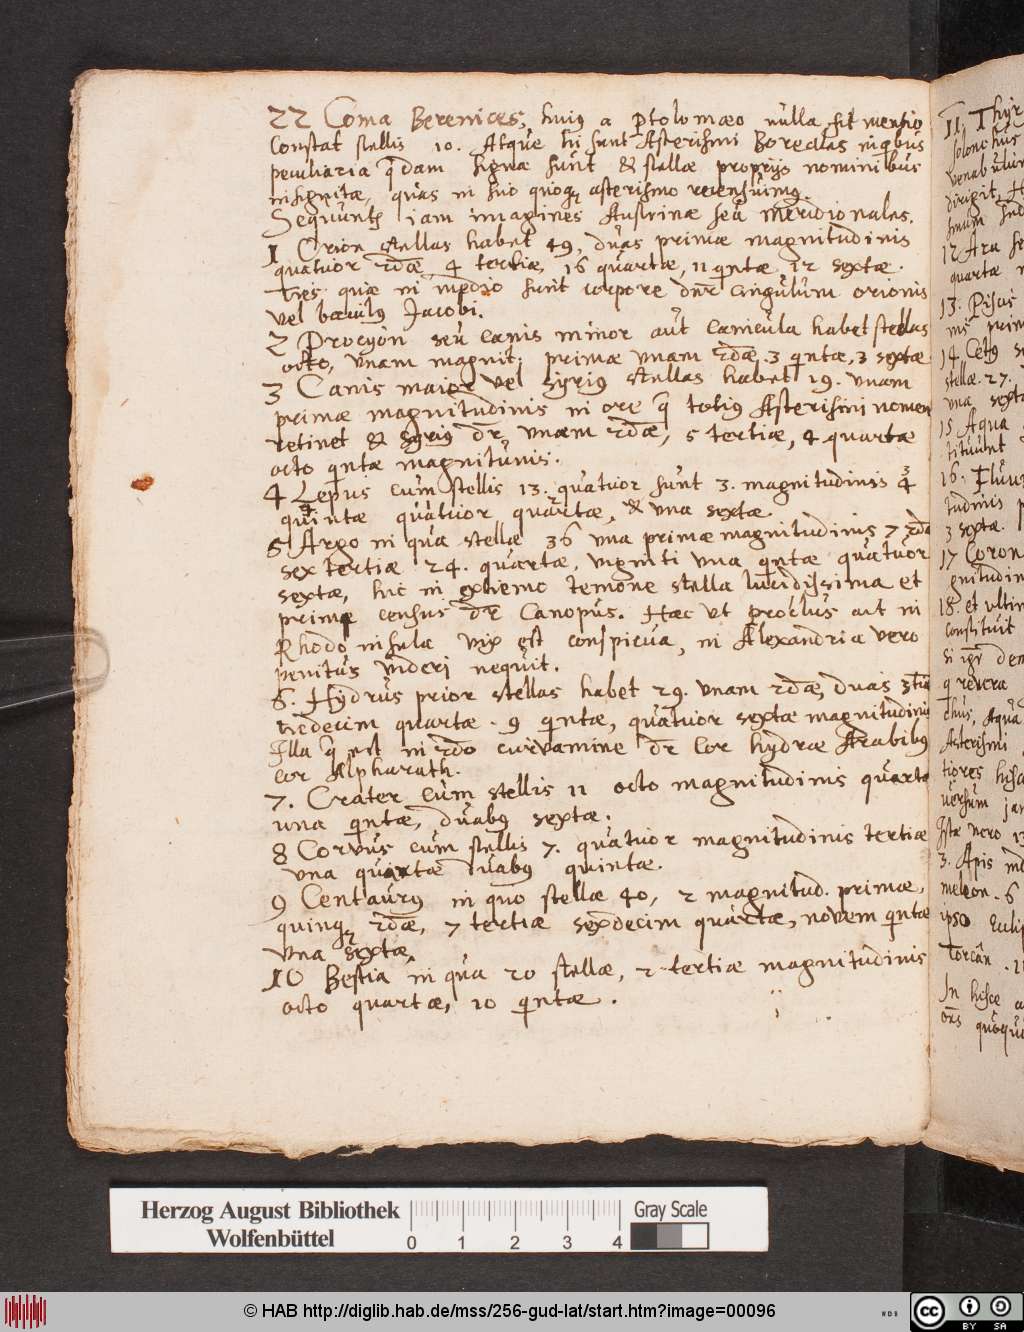 22 Coma Berenices, huiꝰ a Ptolomæo nulla fit mentio
Constat stellis 10. Atque hi sunt Asterismi Boreales in qͥbus
peculiaria qͣdam signa sunt & stellæ proprijs nominibus
insignitæ, quas in suo quoqꝫ asterismo recensuimꝰ.
Sequuntꝛ iam imagines Austrinæ seu meridionales.
1 Orion stellas habet 49, duas primæ magnitudinis
quatuor 2dæ, 4 tertiæ, 16 quartæ, 11 qͥntæ 12 sextæ.
Tres quæ in medio sunt corpore dnr̄ cingulum orionis
vel baculꝰ Jacobi.
2 Procyon seu canis minor aut Canicula habet stellas
octo, unam magnit: primæ unam 2dæ. 3 qͥntæ, 3 sextæ
3 Canis maior vel syriꝰ stellas habet 19. unam
primæ magnitudinis in ore q̄ totiꝰ Asterismi nomen
retinet & syriꝰ dr̄, unam 2dæ, 5 tertiæ, 4 quartæ
octo qͥntæ magnitunis.
4 Lepus cum stellis 13. quatuor sunt 3. magnitudinis 4
quintæ quatuor quartæ, & una sextæ
5 Argo in qua stellæ 36 una primæ magnitudinis 7 2dæ
sex tertiæ 24. quartæ, viginti una qͥntæ quatuor
sextæ, hic in extremo temone stella lucidissima et
primæ census dr̄ Canopus. Hæc ut proclus ait in
Rhodo insula vix est conspicua, in Alexandria vero
penitus videri nequit.
6. Hydrus prior stellas habet 29. unam 2dæ, duas 3tiæ
tredecim quartæ. 9 qͥntæ, quatuor sextæ magnitudinis
Illa q̄ est in 2do curvamine dr̄ cor hydræ Arabibꝰ
cor Alpharath.
7. Crater cum stellis 11 octo magnitudinis quartæ
una qͥntæ, duabꝰ sextæ.
8 Corvus cum stellis 7. quatuor magnitudinis tertiæ
una quartæ duabꝰ quintæ.
9 Centaurꝰ in quo stellæ 40, 2 magnitud. primæ,
quinqꝫ 2dæ, 7 tertiæ sexdecim quartæ, novem qͥntæ
una sextæ,
10 Bestia in qua 20 stellæ, 2 tertiæ magnitudinis
octo quartæ, 10 qͥntæ.
11 Thyr
dirigit,
12 Ara
quartæ
13. Piscis
14 Cetꝰ
stellæ. 27.
una sexta
15 Aqua
16. Fluvi
tudinis p
3 sextæ.
17 Coron
gnitudin
18. et ultim
constituit
Asterismi
tiores hisce
versum
Istæ vero
3. Apis
meleon. 6
ipso
In hisce
Herzog August Bibliothek
Wolfenbüttel
0 1 2 3 4
Gray Scale
© HAB http://diglib.hab.de/mss/256-gud-lat/start.htm?image=00096
cc BY SA